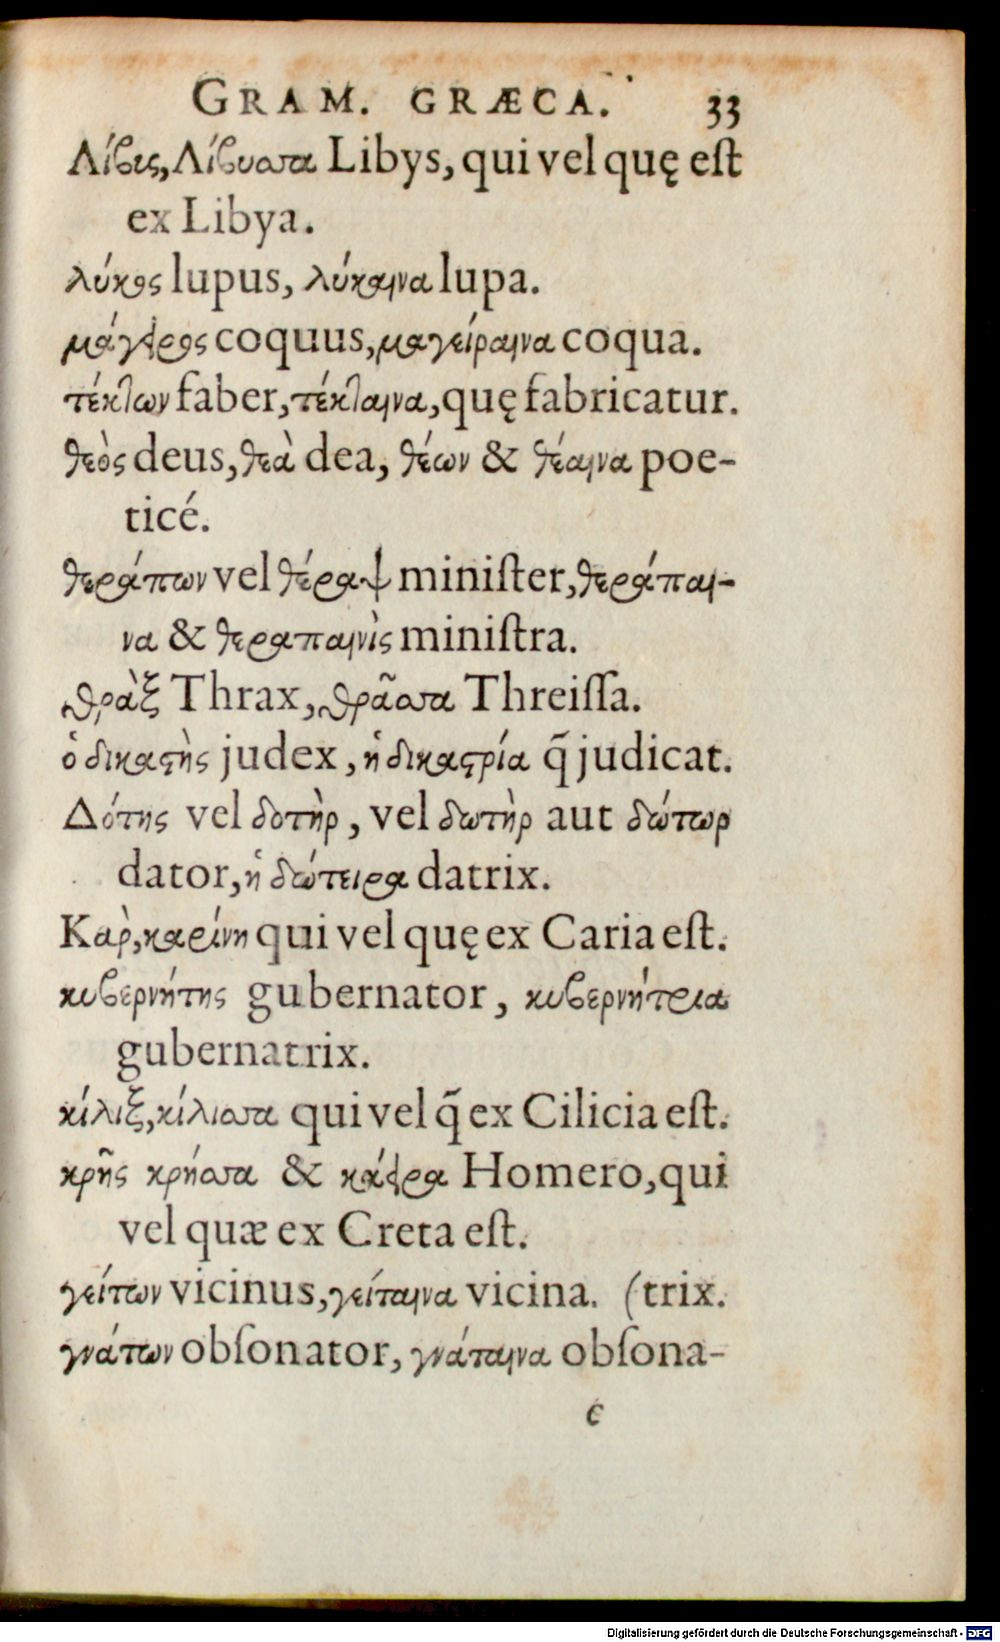 GRAM. GRÆCA. 33
Λίβις, Λίβυσσα Libys, qui vel quę eſt
ex Libya.
λύκος lupus, λύκαινα lupa.
μάγειρος coquus, μαγείραινα coqua.
τέκτων faber, τέκταινα, quę fabricatur.
θεὸς deus, θεὰ dea, θέων & θέαινα poe-
ticé.
θεράπων vel θέραψ miniſter, θεράπαι-
να & θεραπαινὶς miniſtra.
θρὰξ Thrax, θρᾶσσα Threiſſa.
ὁ δικαςὴς judex, ἡ δικαςρία q̃ judicat.
Δότης vel δοτὴρ, vel δωτὴρ aut δώτωρ
dator, ἡ δώτειρα datrix.
Κὰρ, καρίνη qui vel quę ex Caria eſt.
κυβερνήτης gubernator, κυβερνήτρια
gubernatrix.
κίλιξ, κίλισσα qui vel q̃ ex Cilicia eſt.
κρῆς κρήσσα & κάειρα Homero, qui
vel quæ ex Creta eſt.
γείτων vicinus, γείταινα vicina. (trix.
γνάτων obſonator, γνάταινα obſona-
c
Digitalisierung gefördert durch die Deutsche Forschungsgemeinschaft - DFG